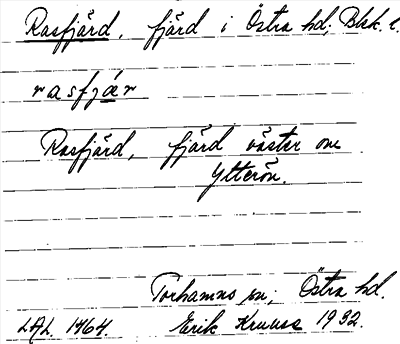 Rasfjärd, fjärd i Östra hd; Blek. l.
rasfjær
Rasfjärd, fjärd väster om
Ytterön.
Torhamns sn; Östra hd.
LAL 1464. Erik Kruuse 1932.